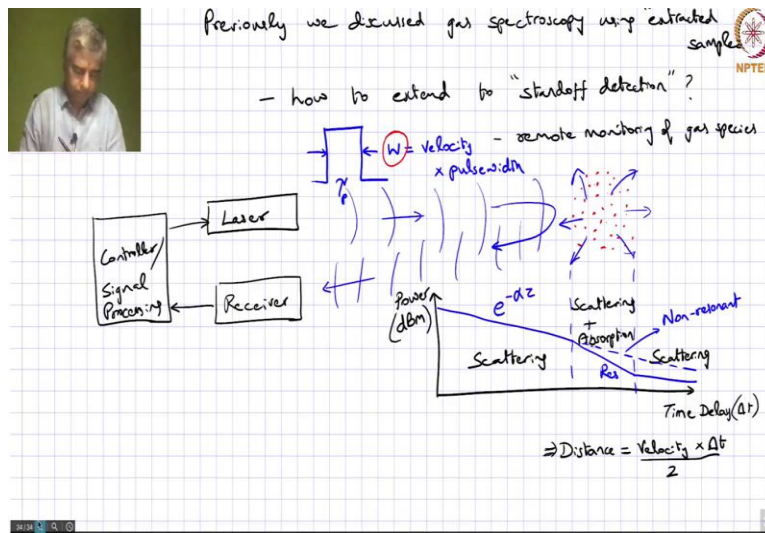 Previously we discussed gas spectroscopy using "extracted
samples"
NPTEL
- how to extend to "standoff detection" ?
- remote monitoring of gas species
W = velocity
× pulsewidth
τp
Laser
Controller/
Signal
Processing
Receiver
Power
(dBm)
e^-αz
Scattering
Scattering
+
Absorption
Non-resonant
Scattering
Res
Time Delay (Δt)
⇒ Distance = Velocity × Δt
2
34/34